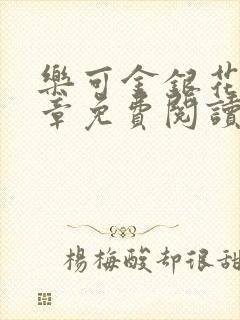 樂可金銀花
章免費閱讀
楊梅酸却很甜